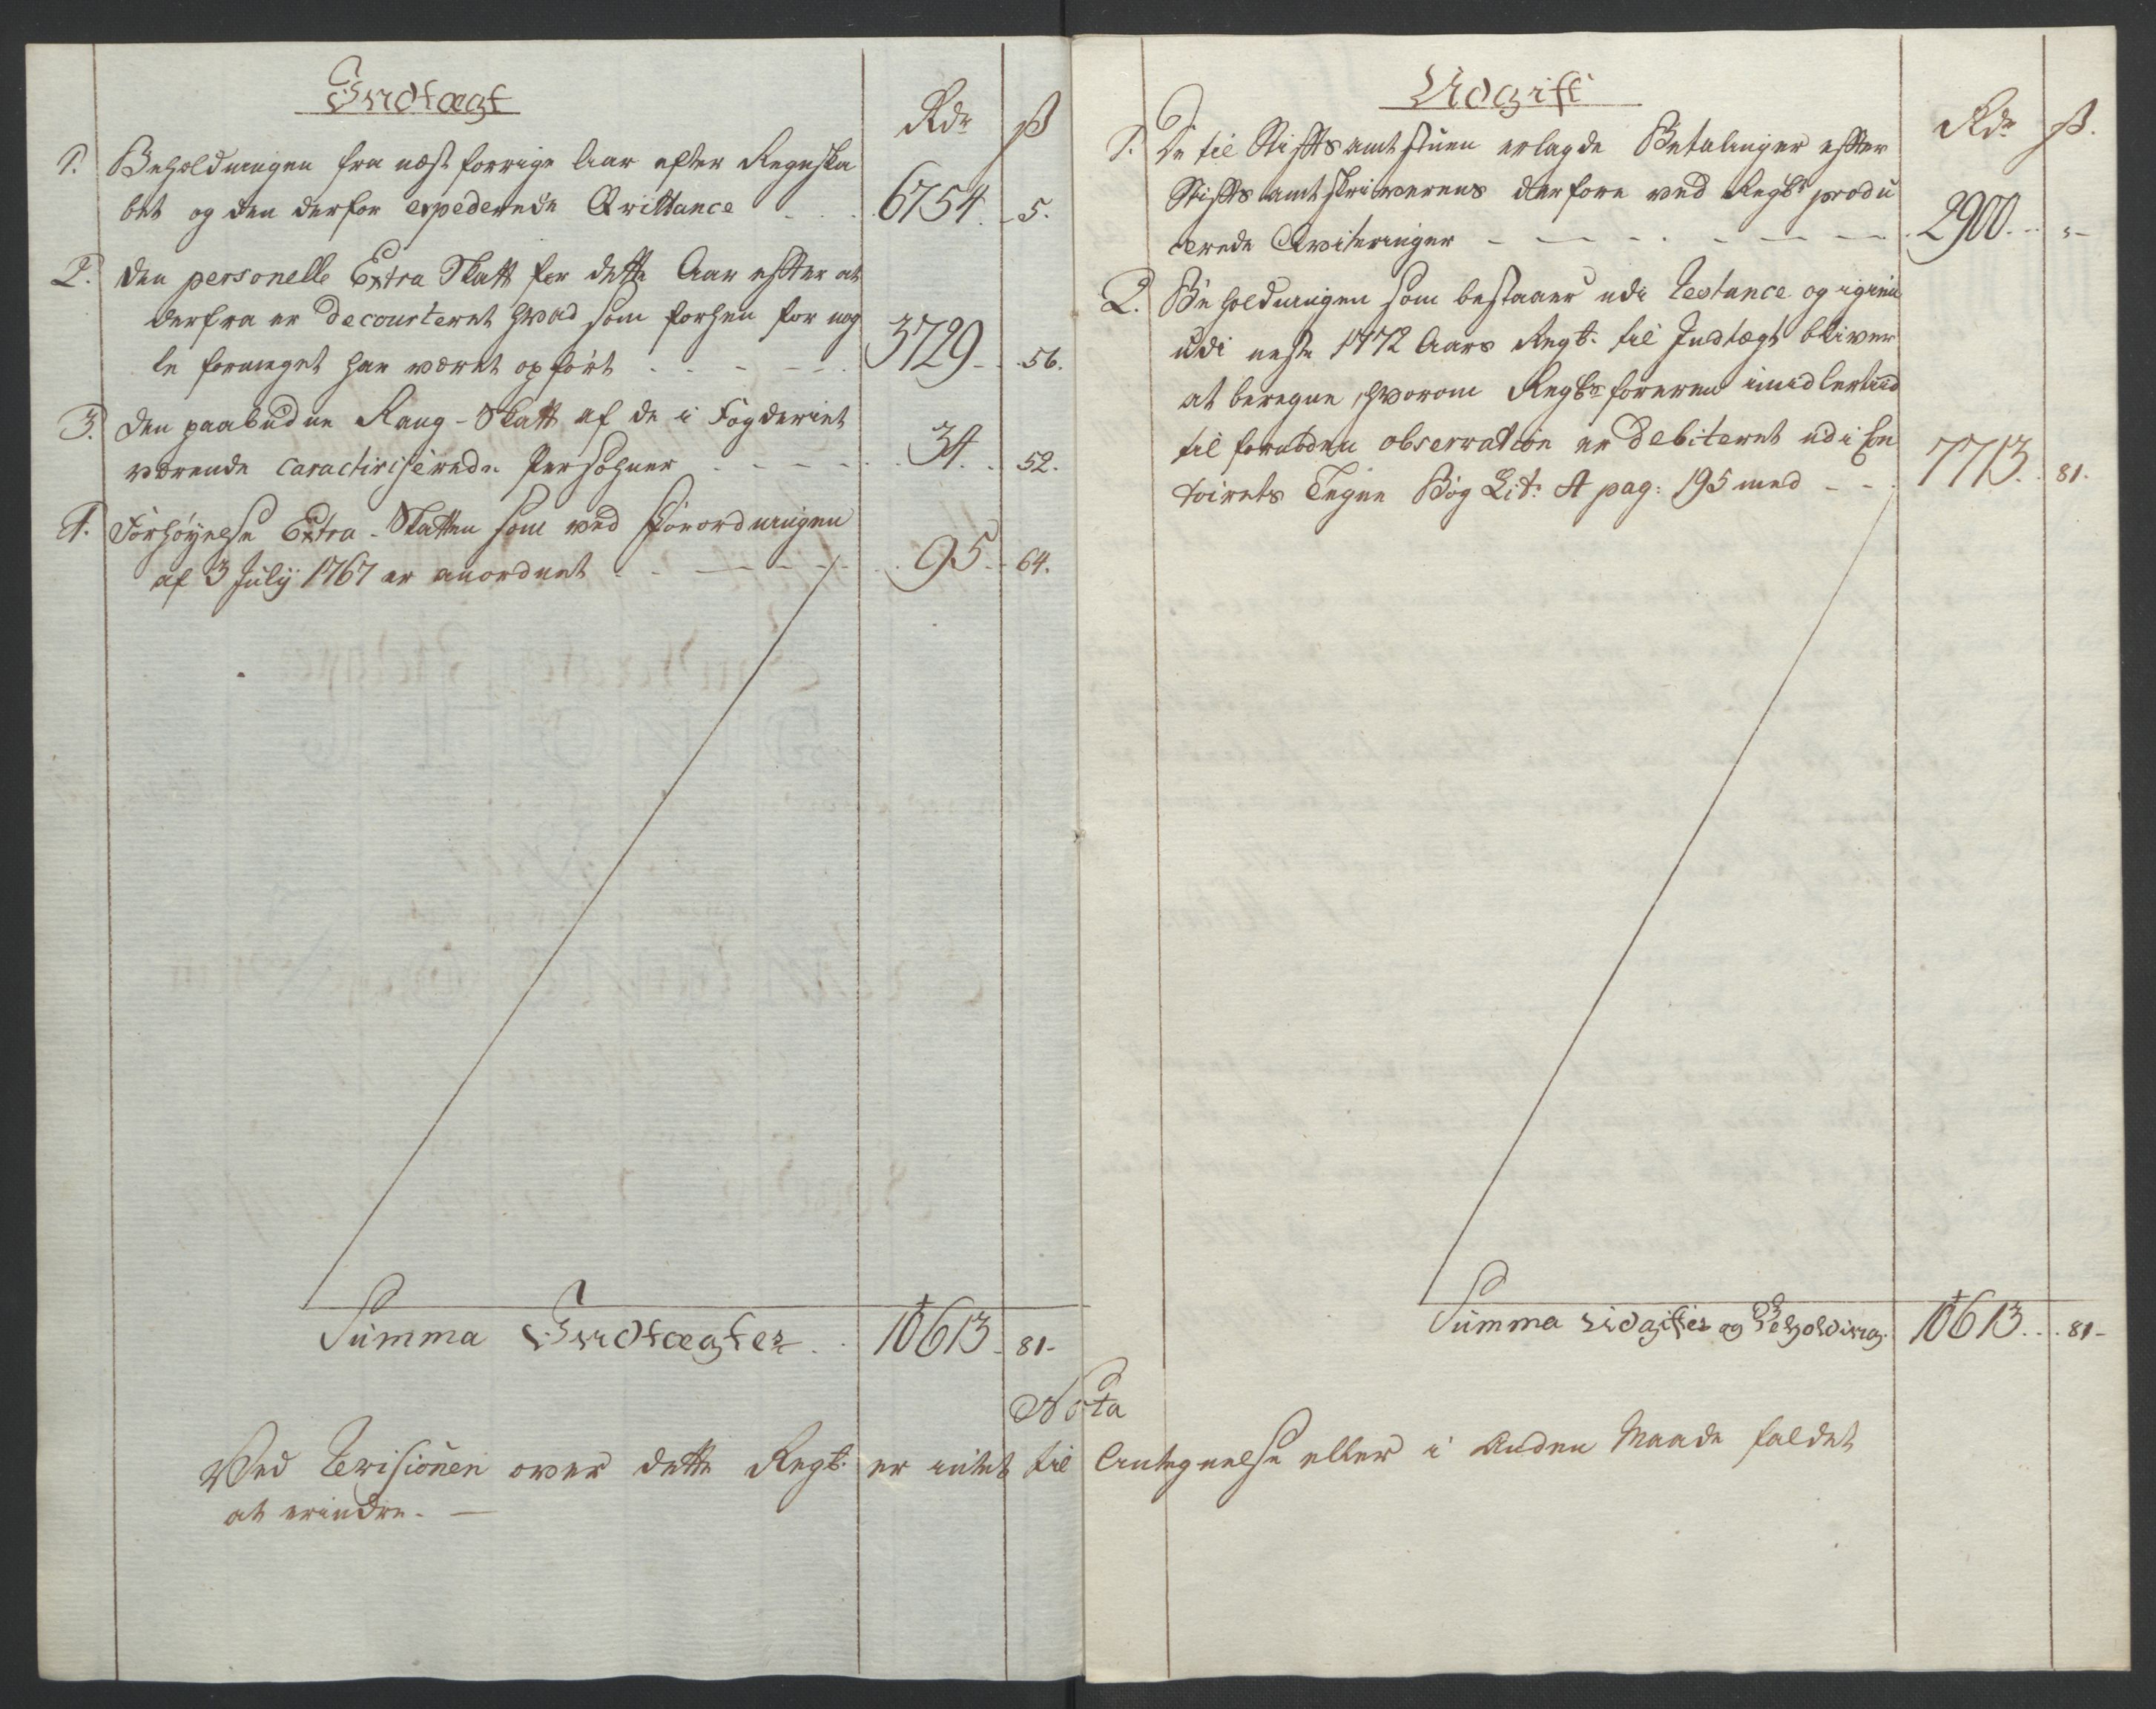 Indtægt
Rdr ß
1. Beholdningen fra næst forrige Aar efter Regnska
bet og den derfor expederede Qvittance - - . 6754. - 5.
2. den personelle Extra Skatt for dette Aar efter at
derfra er decourteret hvad som forhen for nog
le formeget har været opført . . - - - . 3729. - 56.
3. den paabudne Rang-Skatt af de i Fogderiet
værende caractiriserede Persohner . - - - - . 34. . 52.
4. Forhøyelse Extra-Skatten som ved Forordningen
af 3 July 1767 er anordnet . - - - - . 95. - 64.
Summa Indtægter . . 10613 - 81-
Udgift
Rdr ß.
1. De til Stiftsamtstuen erlagde Betalinger efter
Stiftsamtskriverens derfore ved Regbt produ
cerede Qviteringer - - - - . - - - - . 2900. - "-
2. Beholdningen som bestaaer udi Restance og igien
udi neste 1772 Aars Regbt. til Indtægt bliver
at beregne, hvorom Regbs foreren imidlertiid
til fornøden observation er debiteret udi Con
toirets Tegne Bog Lit: A pag: 195 med - - . 7713. . 81.
Summa Udgifter og Beholdning. 10613. . . 81-
Nota
Ved Revisionen over dette Regbt: er intet til Antegnelse eller i Anden Maade faldet
at erindre. -